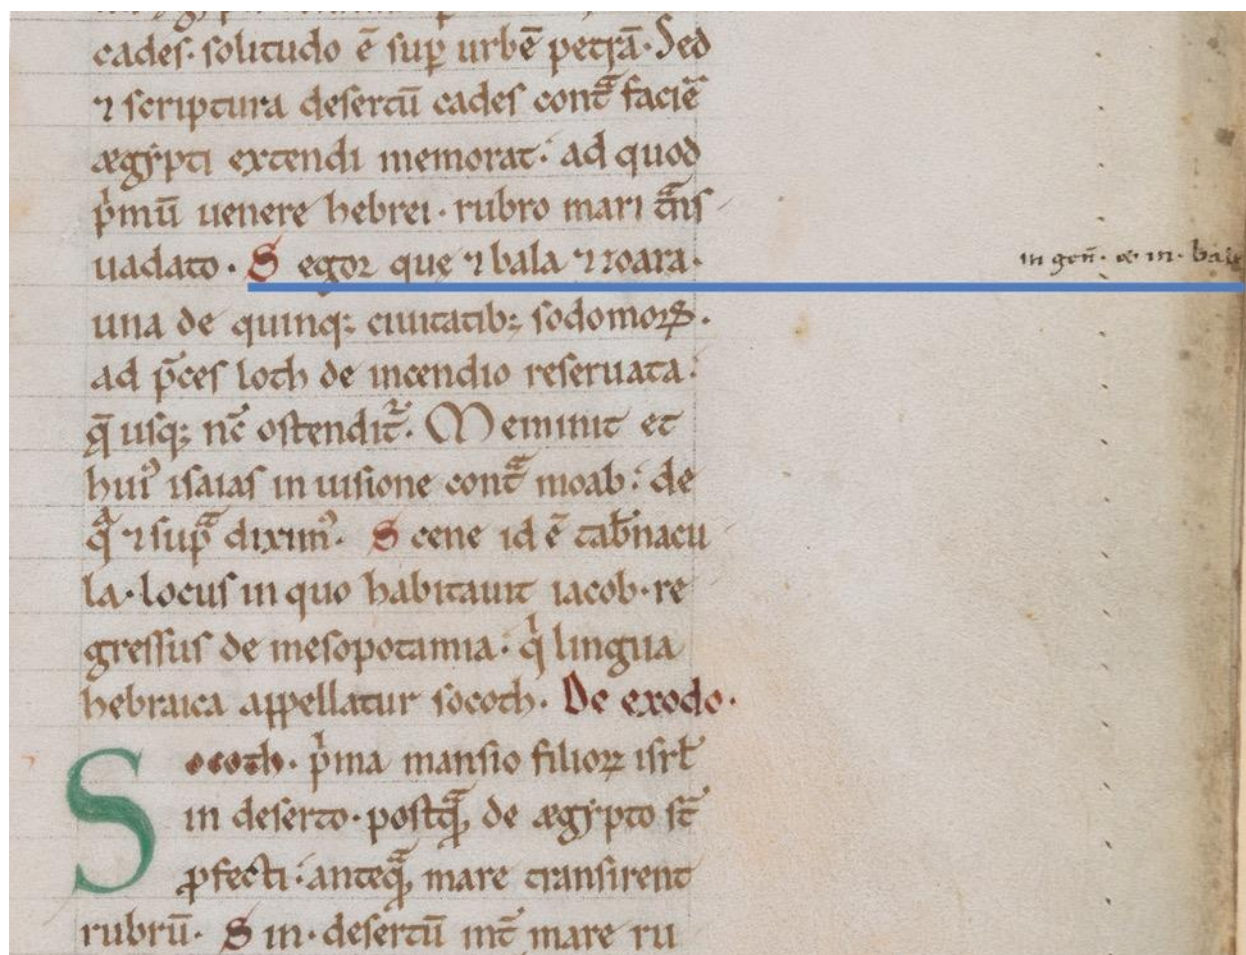 cadeſ· ſolitudo ē ſuꝑ urbē petrā· Sed
⁊ ſcriptura deſertū cadeſ contᷓ faciē
ægẏpti extendi memorat: ad quod
pͥmū uenere hebrei· rubro mari tᷓnſ
uadato· Segoꝛ quę ⁊ bala ⁊ zoara· in gen̄· & in·
una de quinq; ciuitatib; ſodomoꝝ·
ad p̄ceſ loth de incendio reſeruata:
q̄ uſq; nc̄ oſtendit᷑· Meminit et
huiꝰ iſaiaſ in uiſione contᷓ moab: de
qᷓ ⁊ ſupᷓ diximꝰ· Scene id ē tab̄nacu
la· locuſ in quo habitauit iacob· re
greſſuſ de meſopotamia· qͥ lingua
hebraica appellatur ſocoth· De exodo·
Socoth· pͥma manſio filioꝝ iſrł
in deſerto· poſtqᷓ, de ægẏpto ſt̄
ꝓfecti: anteqᷓ, mare tranſirent
rubrū· Sin· deſertū int̄ mare ru